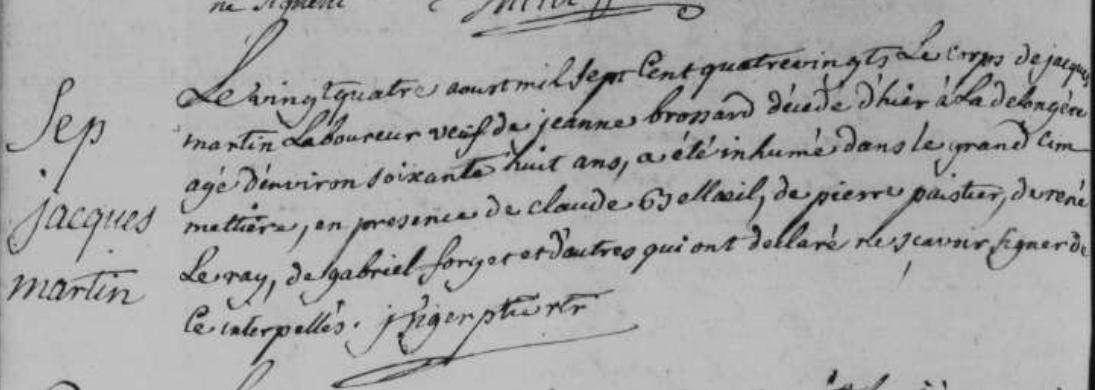 ne signent
Sep
jacques
martin
Le vingt quatre aoust mil sept cent quatrevingts Le corps de jacques
martin Laboureur veuf de jeanne brossard décédé d'hier à La delongère
agé d'environ soixante huit ans, a été inhumé dans le grand cim
mettiére, en presence de claude Bellœil, de pierre paistier, de rené
Le ray, de gabriel forget et d'autres qui ont declaré ne scavoir signer de
Ce interpellés. ptre